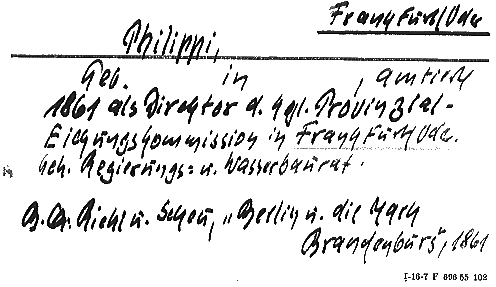 Frankfurt/Oder
Philippi,
Geb. in , amtiert
1861 als Direktor d. Kgl. Provinzial-
Eichungskommission in Frankfurt/Oder.
Geh. Regierungs= u. Wasserbaurat.
B. Gr. Riehl u. Scheu, „Berlin u. die Mark
Brandenburg", 1861
I-16-7 F 696 55 102